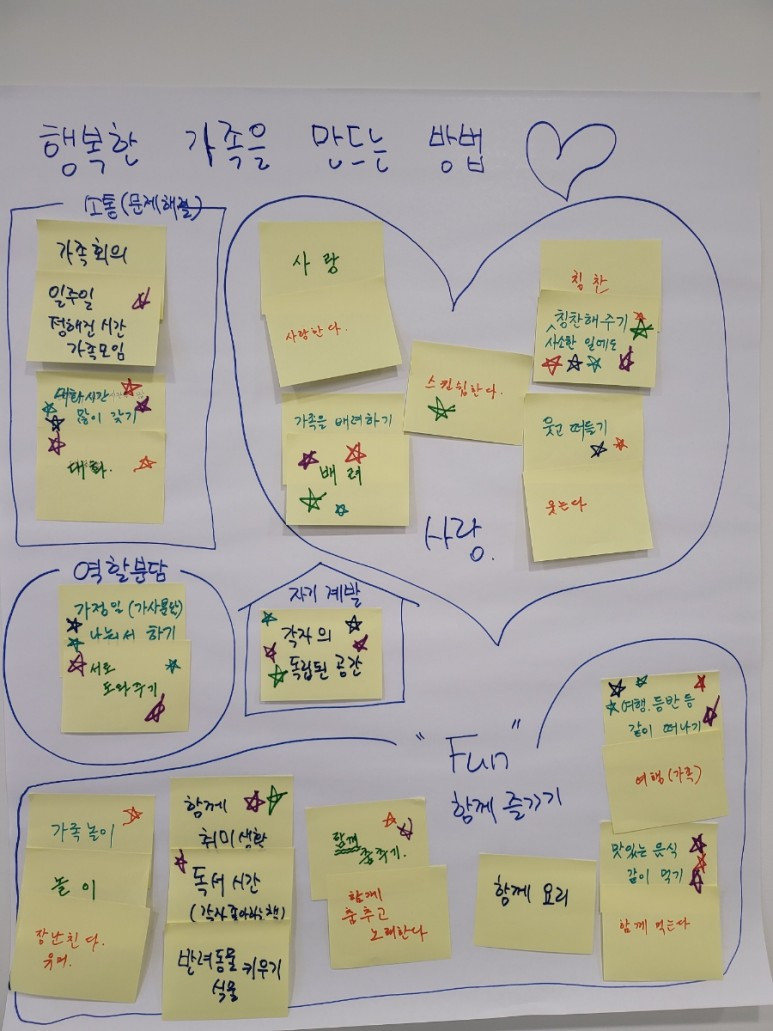 행복한 가족을 만드는 방법
소통(문제해결)
가족회의
일주일
정해진 시간
가족모임
대화시간
많이 갖기
대화.
사랑
사랑한다.
칭찬
칭찬해주기
사소한 일에도
스킨쉽한다.
가족을 배려하기
배려
웃고 떠들기
웃는다
사랑.
역할분담
가정일(가사분담)
나눠서 하기
서로
도와주기
자기 계발
각자의
독립된 공간
"Fun"
함께 즐기기
여행.등반 등
같이 떠나기
여행(가족)
맛있는 음식
같이 먹기
함께 먹는다
가족놀이
놀이
장난친다.
유머.
함께
취미생활
독서 시간
(각자 좋아하는 책)
반려동물 키우기
식물
함께
춤추기.
함께
춤추고
노래한다
함께 요리